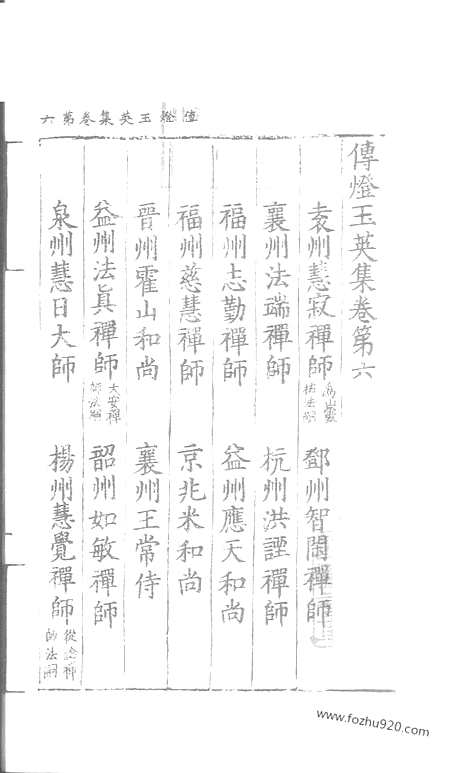 傳燈玉英集卷第六
傳燈玉英集卷第六
袁州慧寂禪師 鄧州智閑禪師
襄州法端禪師 杭州洪諲禪師
福州志勤禪師 益州應天和尚
福州慈慧禪師 京兆米和尚
晉州霍山和尚 襄州王常侍
益州法真禪師 大安禪師法嗣 韶州如敏禪師
泉州慧日大師 揚州慧覺禪師 從諗禪師法嗣
www.fozhu920.com